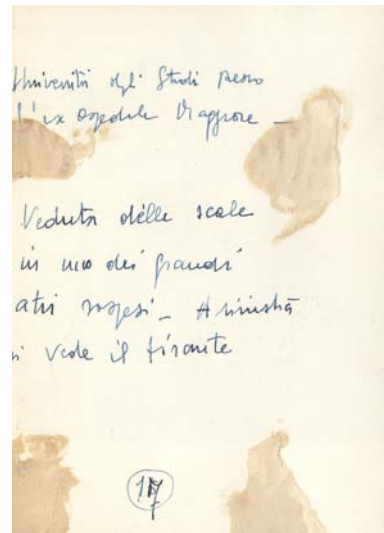 Università degli Studi presso
l'ex Ospedale Maggiore _
Veduta delle scale
in uno dei grandi
atri sospesi _ A sinistra
si vede il tirante
17